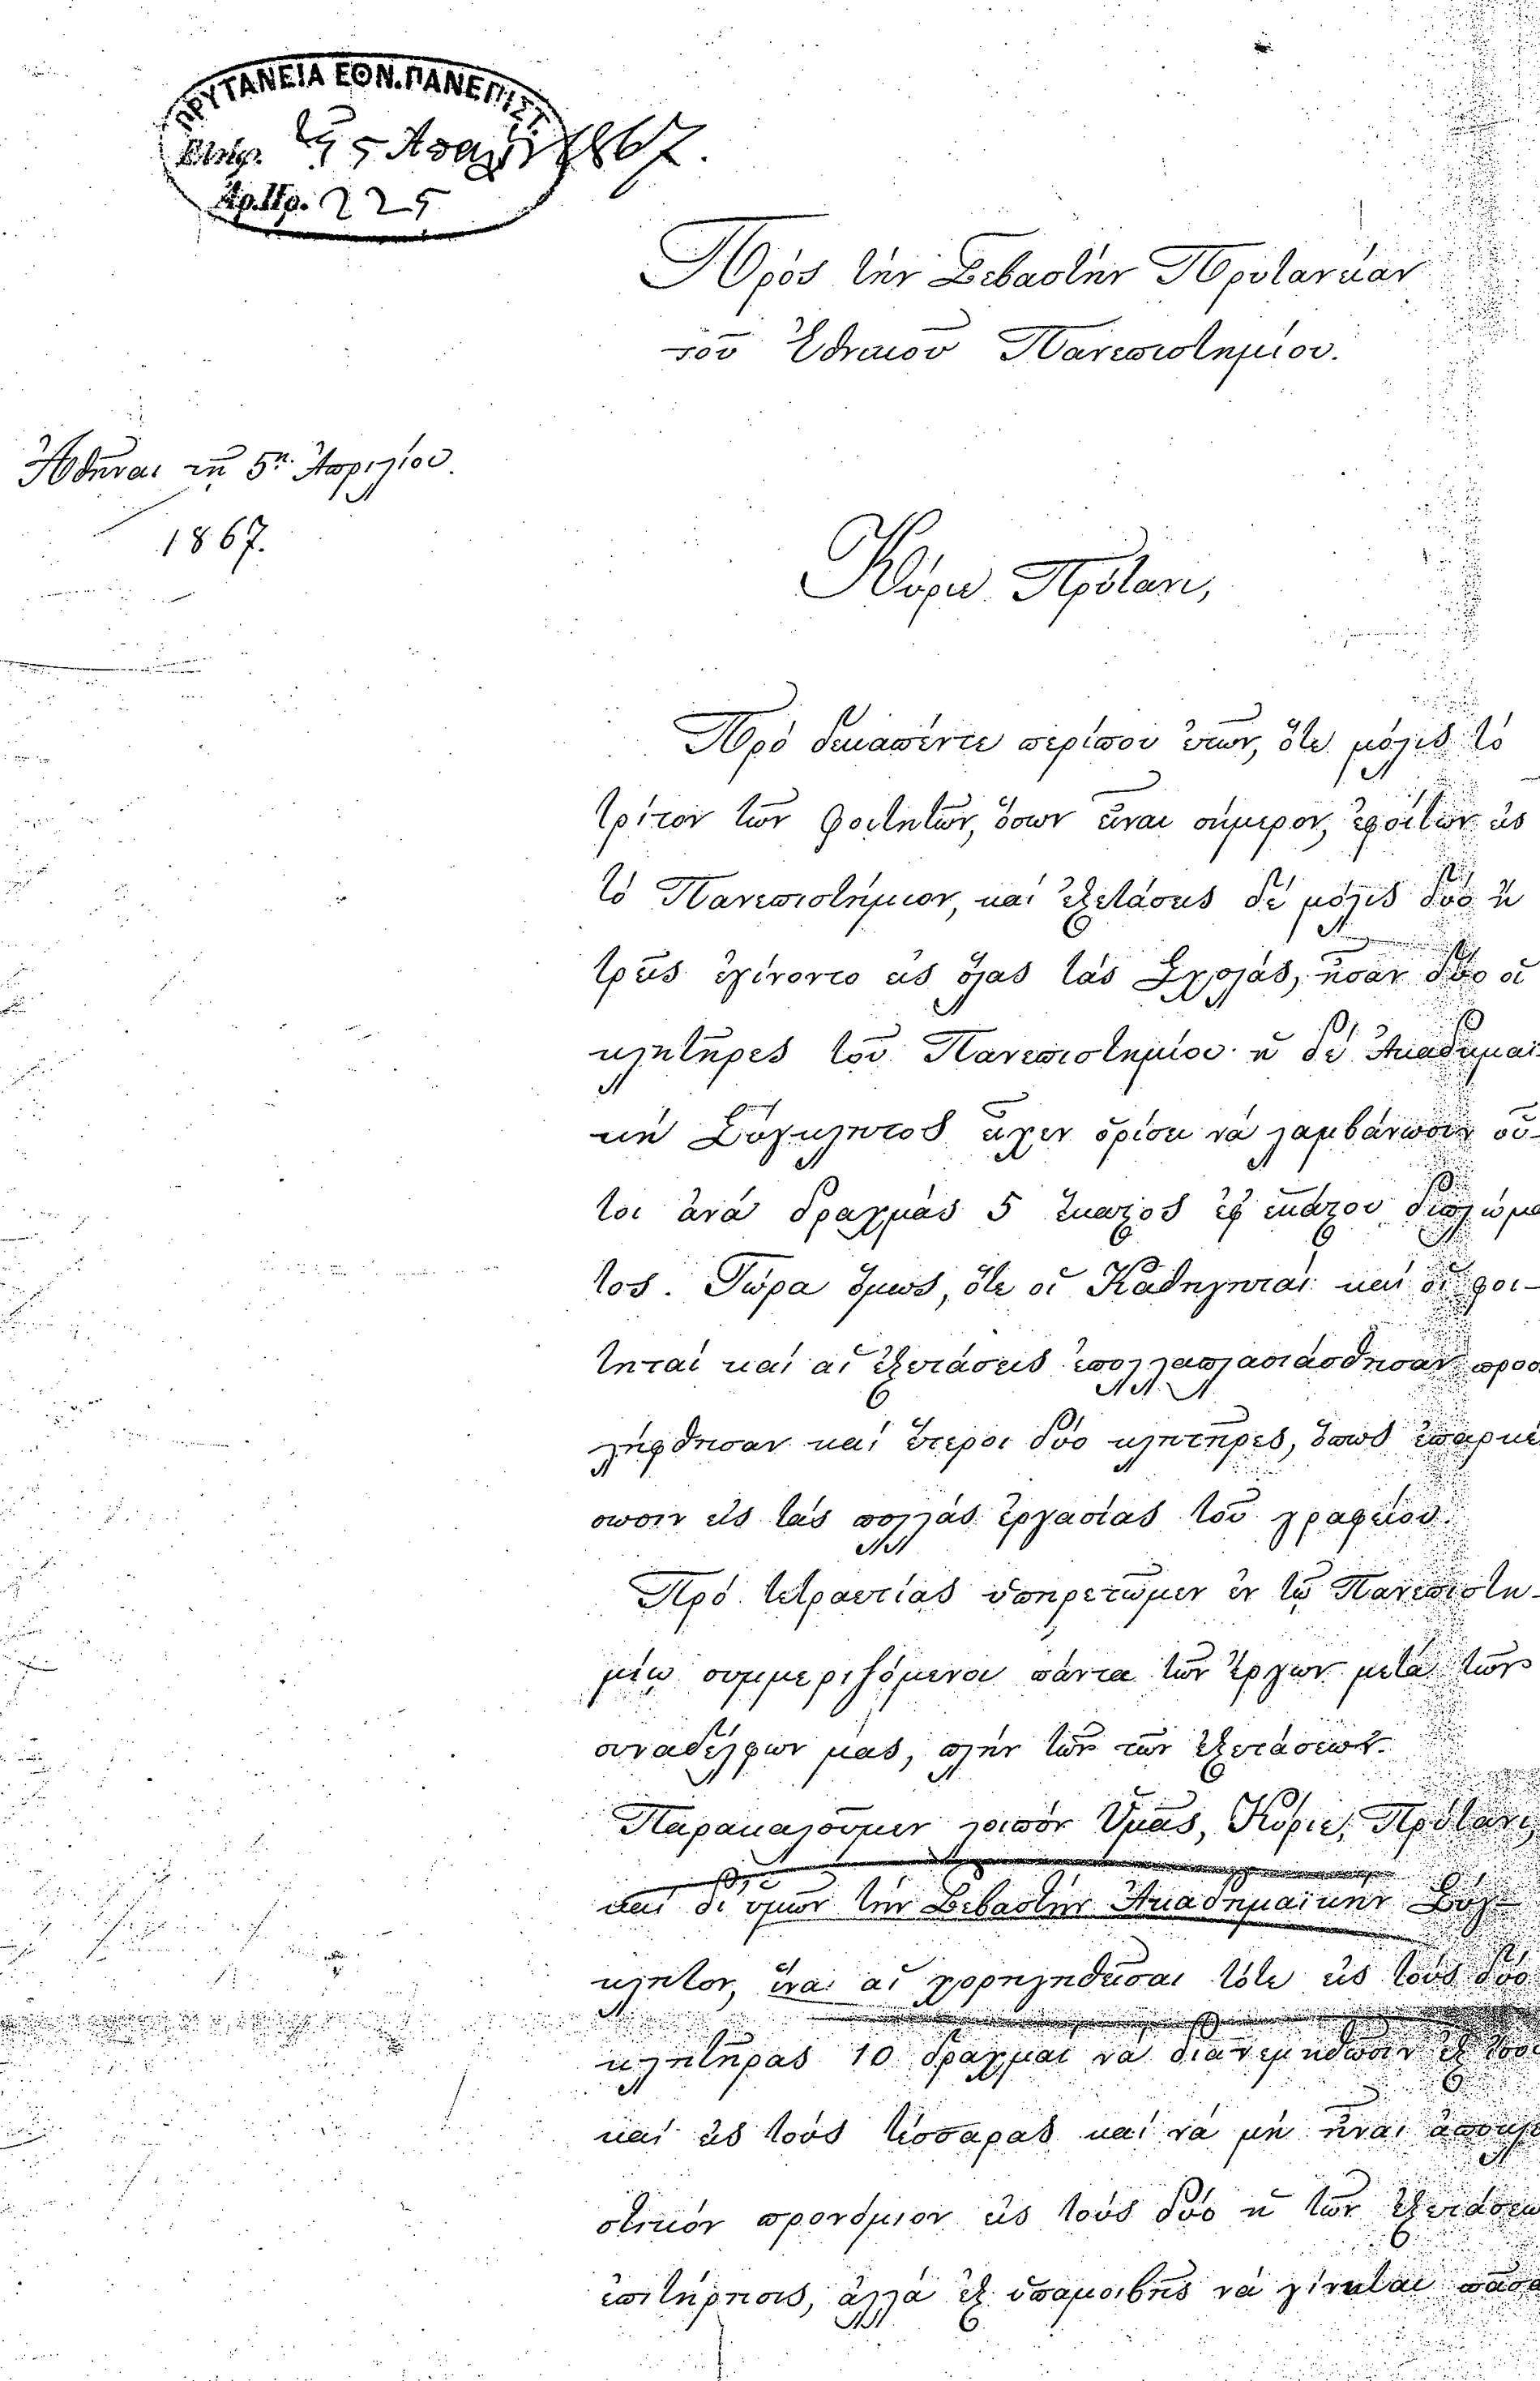 ΠΡΥΤΑΝΕΙΑ ΕΘΝ. ΠΑΝΕΠΙΣΤ.
Ἐλήφ. τῇ 5 Ἀπριλ 1867.
Ἀρ. Πρ. 225
Πρὸς τὴν Σεβαστὴν Πρυτανείαν
τοῦ Ἐθνικοῦ Πανεπιστημίου.
Ἀθῆναι τῇ 5ῃ Ἀπριλίου
1867.
Κύριε Πρύτανι,
Πρὸ δεκαπέντε περίπου ἐτῶν, ὅτε μόλις τὸ
τρίτον τῶν φοιτητῶν, ὅσων εἶναι σήμερον, ἐφοίτων εἰς
τὸ Πανεπιστήμιον, καὶ ἐξετάσεις δὲ μόλις δύο ἢ
τρεῖς ἐγίνοντο εἰς ὅλας τὰς Σχολὰς, ἦσαν δύο οἱ
κλητῆρες τοῦ Πανεπιστημίου· ἡ δὲ Ἀκαδημαϊ-
κὴ Σύγκλητος εἶχεν ὁρίσει νὰ λαμβάνωσιν οὗ-
τοι ἀνὰ δραχμὰς 5 ἕκαστος ἐφ' ἑκάστου διπλώμα
τος. Τώρα ὅμως, ὅτε οἱ Καθηγηταὶ καὶ οἱ φοι-
τηταὶ καὶ αἱ ἐξετάσεις ἐπολλαπλασιάσθησαν προσ
λήφθησαν καὶ ἕτεροι δύο κλητῆρες, ὅπως ἐπαρκέ
σωσιν εἰς τὰς πολλὰς ἐργασίας τοῦ γραφείου.
Πρὸ τετραετίας ὑπηρετῶμεν ἐν τῷ Πανεπιστη-
μίῳ συμμεριζόμενοι πάντα τῶν ἔργων μετὰ τῶν
συναδέλφων μας, πλὴν τῶν τῶν ἐξετάσεων.
Παρακαλοῦμεν λοιπὸν Ὑμᾶς, Κύριε, Πρύτανι,
καὶ δι' ὑμῶν τὴν Σεβαστὴν Ἀκαδημαϊκὴν Σύγ-
κλητον, ἵνα αἱ χορηγηθεῖσαι τότε εἰς τοὺς δύο
κλητῆρας 10 δραχμαὶ νὰ διανεμηθῶσιν ἐξ ἴσου
καὶ εἰς τοὺς τέσσαρας καὶ νὰ μὴ ἦναι ἀποκλει
στικὸν προνόμιον εἰς τοὺς δύο ἡ τῶν ἐξετάσεων
ἐπιτήρησις, ἀλλὰ ἐξ ὑπαμοιβῆς νὰ γίνεται πᾶσα